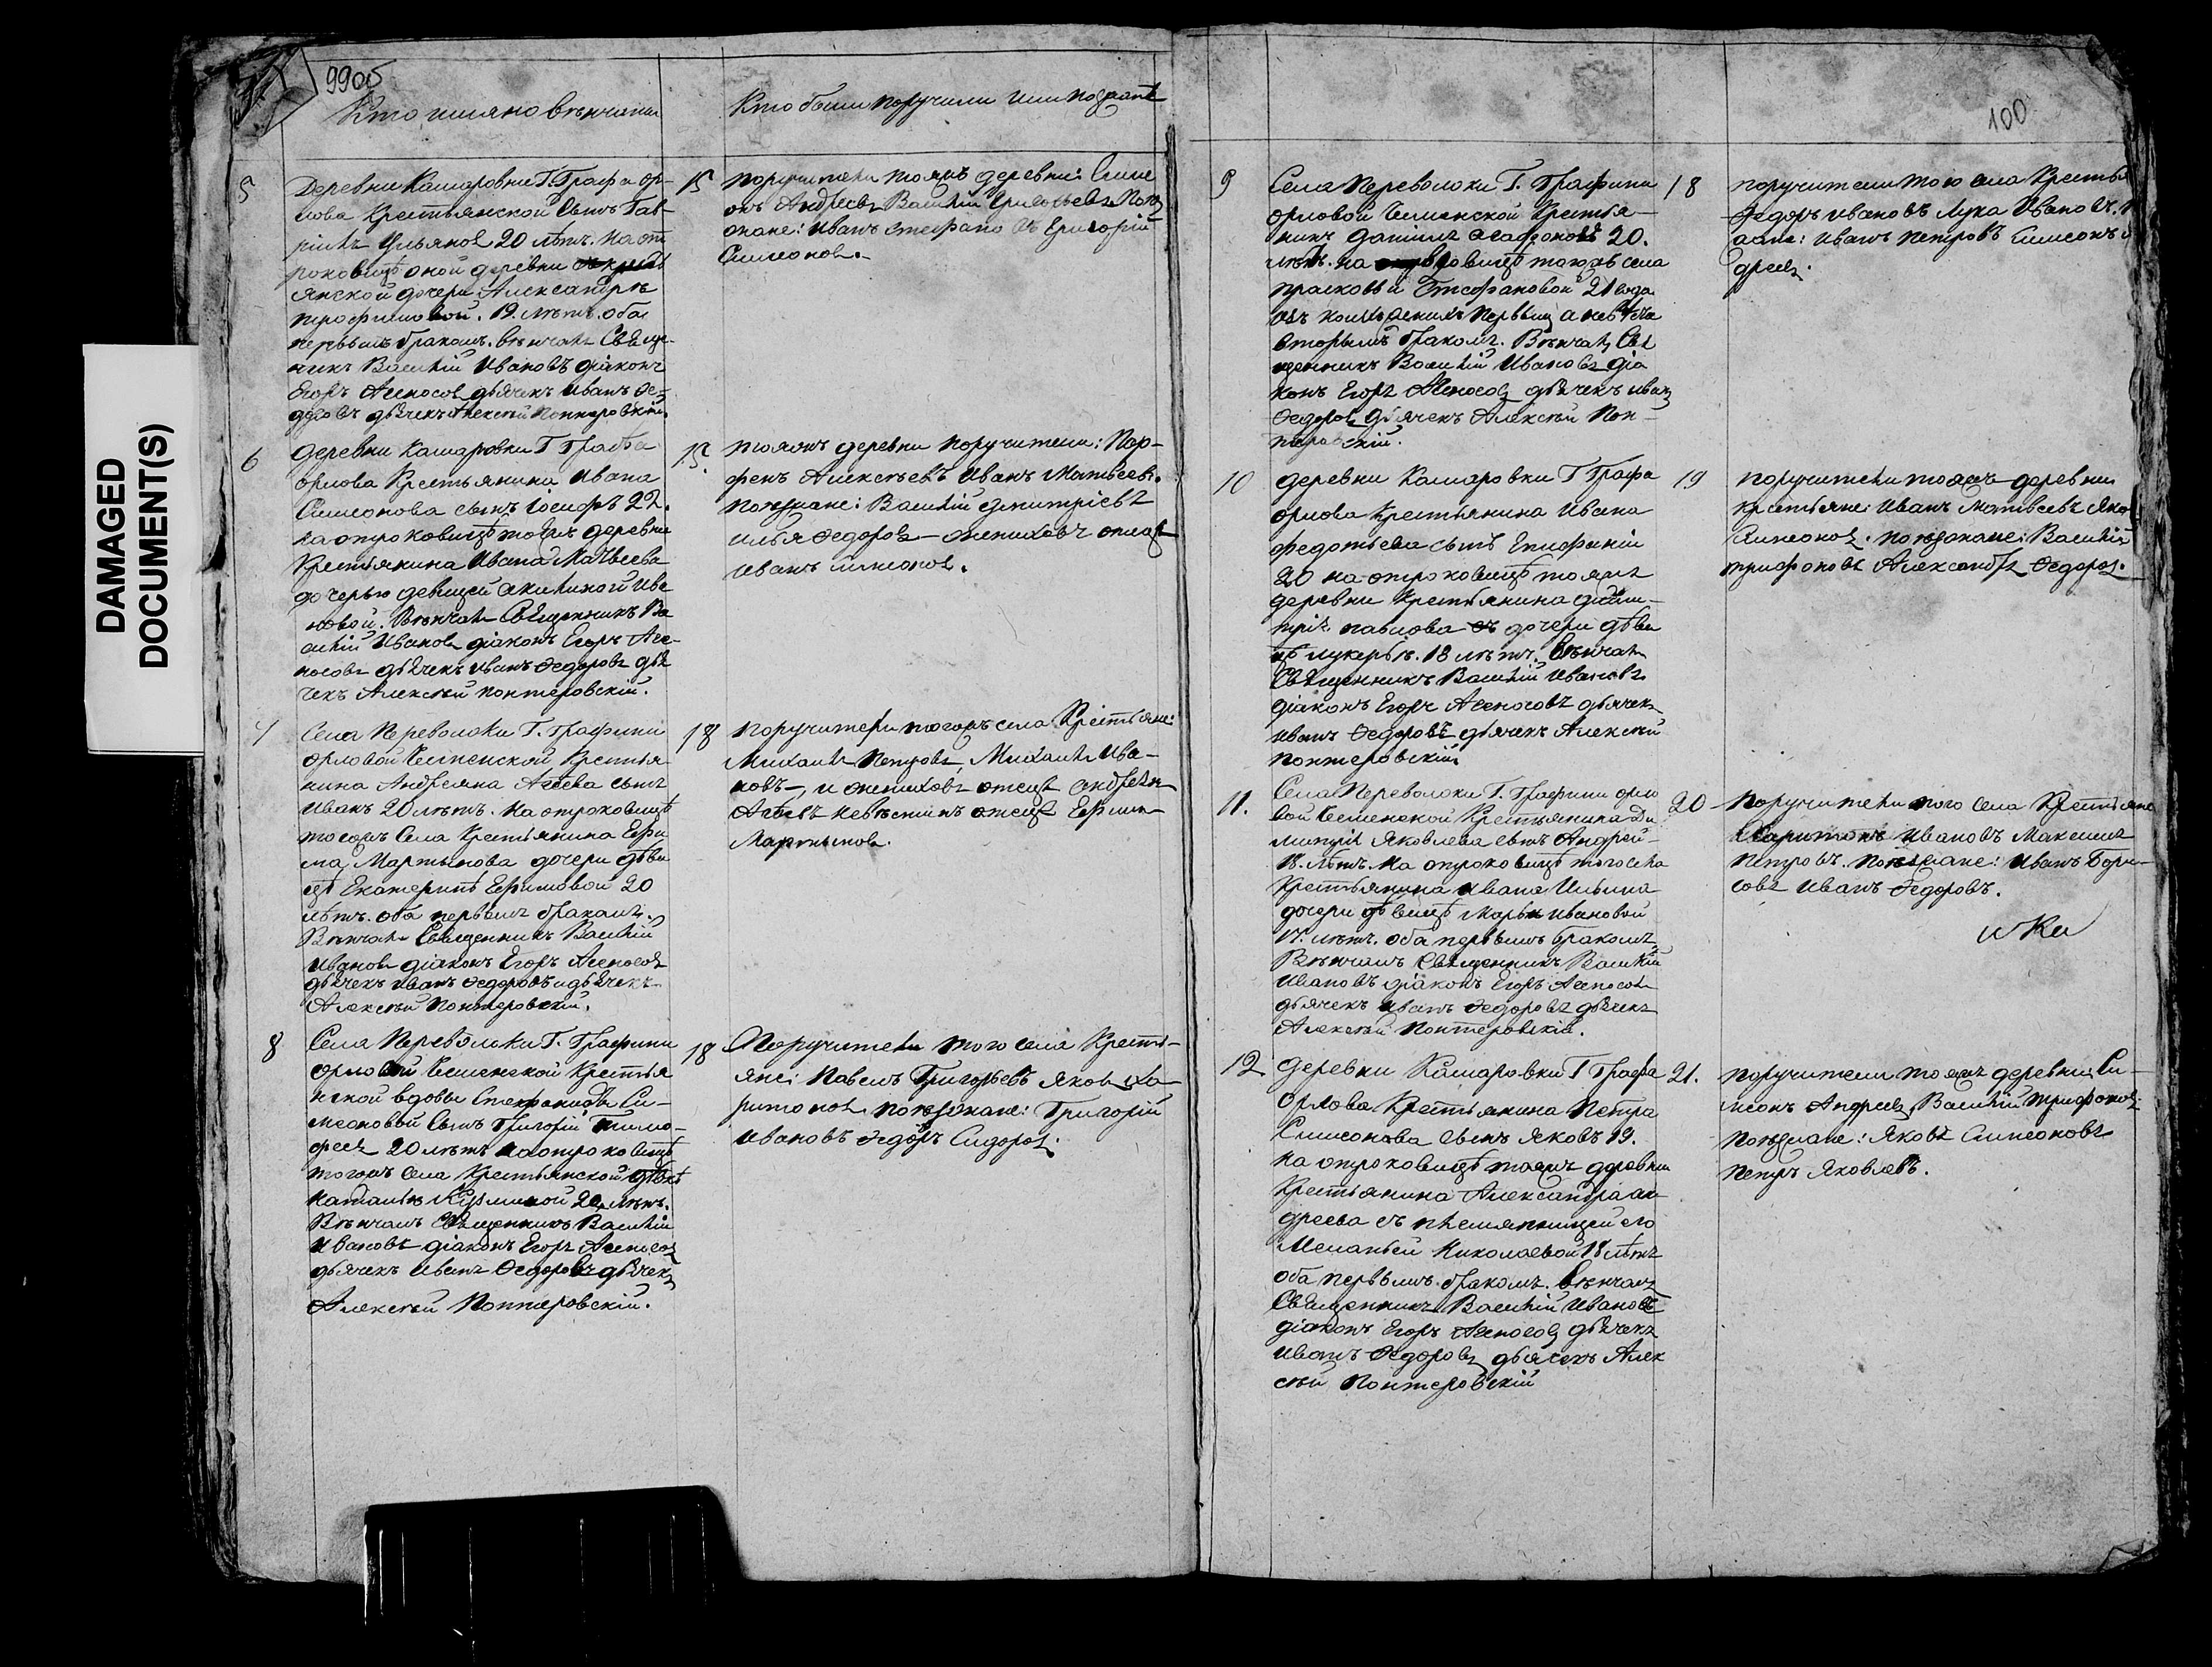 DAMAGED
DOCUMENT(S)
99об
Кто имяно венчаны
Кто были поручили или поезжане
5
Деревни Камаровки Г. Графа Ор-
лова Крестьянской сынъ Гав-
рилъ Ульяновъ 20 лѣтъ. на от
роковицѣ оной деревни крестъ
янской дочери Александрѣ
трофимовой. 19. лѣтъ. оба
первымъ бракомъ. вѣнчалъ Свяще-
никъ Василій Ивановъ діаконъ
Егоръ дьячекъ Иванъ Ѳе-
доровъ дьячекъ Алексѣй Понтеровскій.
15
поручители тояжъ деревни: Симе
онъ Андреевъ Василій Григорьевъ Поез
жане: Иванъ Стефановъ Григорій
Симеоновъ.
6
деревни Камаровки Г Графа
орлова Крестьянина Ивана
Симеонова сынъ Іосифъ 22.
на отроковицѣ тояжъ деревни
Крестьянина Ивана Матвеева
дочерью девицей акилиной Ива
новой. Вѣнчалъ Священникъ Ва
силій Ивановъ діаконъ Егоръ
дьячекъ Иванъ Ѳедоровъ дья
чекъ Алексѣй понтеровскій.
15.
тояжъ деревни поручители: Пар-
фенъ Алексѣевъ Иванъ Матвеевъ.
поезжане: Василій Дмитріевъ
Илья Ѳедоровъ – жениховъ отецъ
Иванъ Симеоновъ.
7
Села Переволоки Г. Графини
орловой Чесменской Крестья
нина Андреяна Агѣева сынъ
Иванъ 20 лѣтъ. на отроковицѣ
тогожъ Села Крестьянина Ефи
ма Мартынова дочери дѣви
цѣ Екатеринѣ Ефимовой 20
лѣтъ. оба первымъ бракомъ.
Вѣнчалъ Священникъ Василій
Ивановъ діаконъ Егоръ
дьячекъ Иванъ Ѳедоровъ и дьячекъ
Алексѣй Понтеровскій.
18
поручители тогожъ села Крестьяне:
Михаилъ Петровъ, Михаилъ Ива-
новъ –, и жениховъ отецъ Андреянъ
Агѣевъ невѣстинъ отецъ Ефимъ
Мартыновъ.
8
Села Переволоки Г. Графини
орловой Чесменской Крестья
нской вдовы Степаниды Си-
меоновой сынъ Григорій Тимо-
феевъ 20 лѣтъ на отроковицѣ
тогожъ села Крестьянской дѣвкѣ
Наталье Кузминой 20 лѣтъ.
Вѣнчалъ Священникъ Василій
Ивановъ діаконъ Егоръ
дьячекъ Иванъ Ѳедоровъ дьячекъ
Алексѣй Понтеровскій.
18
Поручители того села Крестъ-
яне: Павелъ Григорьевъ Яковъ Ха-
ритоновъ поезжане: Григорій
Ивановъ Ѳедоръ Сидоровъ.
100
9
Села Переволоки Г. Графини
орловой Чесменской Крестья-
нинъ Даніилъ 20.
лѣтъ. на тогожъ села
прасковьи Стефановой 21 года
первымъ а невѣста
вторымъ бракомъ. Вѣнчалъ Свя
щенникъ Василій Ивановъ діа
конъ Егоръ дьячекъ Иванъ
Ѳедоровъ дьячекъ Алексѣй Пон-
теровскій.
18
поручители того села Крестья
Ѳедоръ Ивановъ Лука Ивановъ.
Иванъ Петровъ Симеонъ
дреевъ.
10
деревни Камаровки Г Графа
орлова Крестьянина Ивана
федотьева сынъ Епифаній
20 на отроковицѣ тояжъ
деревни Крестьянина Дими-
трія павлова дочери дѣви
цѣ лукерьѣ. 18 лѣтъ. Вѣнчалъ
Священникъ Василій Ивановъ
діаконъ Егоръ дьячекъ
Иванъ Ѳедоровъ дьячекъ Алексѣй
понтеровскій
19
поручители тояжъ деревни
крестьяне Иванъ Матвеевъ Яковъ
Симеоновъ. поезжане: Василій
трифоновъ Александръ Ѳедоровъ.
11.
Села Переволоки Г. Графини орло
вой Чесменской Крестьянина Ди
митрія Яковлева сынъ Андрей
18. лѣтъ. на отроковицѣ того села
Крестьянина Ивана Ильина
дочери дѣвицѣ Марьѣ Ивановой
17. лѣтъ. оба первымъ бракомъ
Вѣнчалъ Священникъ Василій
Ивановъ діаконъ Егоръ
дьячекъ Иванъ Ѳедоровъ дьячекъ
Алексѣй Понтеровскій.
20
поручители того Села Крестьяне
Харитонъ Ивановъ Максимъ
Петровъ. поезжане: Иванъ Бори-
совъ Иванъ Ѳедоровъ.
12
деревни Камаровки Г Графа
Орлова Крестьянина Петра
Симеонова сынъ Яковъ 19.
на отроковицѣ тояжъ деревни
Крестьянина Александра ан
дреева съ племянницей его
Меланьей Николаевой 18 лѣтъ
оба первымъ бракомъ. Вѣнчалъ
Священникъ Василій Ивановъ
діаконъ Егоръ дьячекъ
Иванъ Ѳедоровъ дьячекъ Алек
сѣй Понтеровскій
21.
поручители тояжъ деревни Си-
меонъ Андреевъ, Василій трифоновъ
поезжане: Яковъ Симеоновъ
Петръ Яковлевъ.